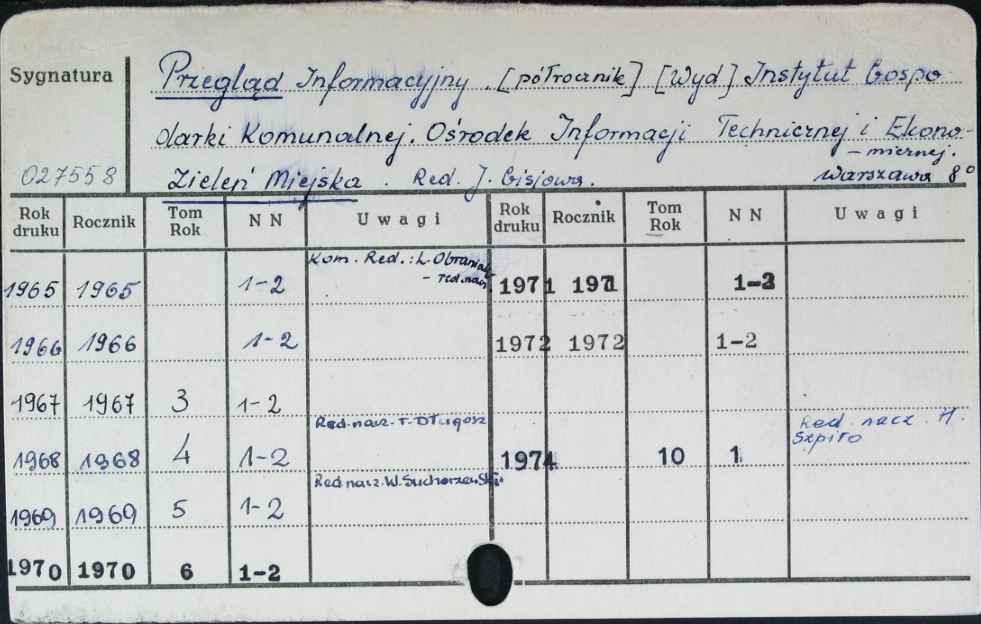 Sygnatura
Przegląd Informacyjny. [półrocznik] [Wyd] Instytut Gospo
darki Komunalnej. Ośrodek Informacji Technicznej i Ekono-
- micznej.
027558 Zieleń Miejska. Red. J. Gisjowa. Warszawa 8°
Rok druku Rocznik Tom Rok NN Uwagi Rok druku Rocznik Tom Rok NN Uwagi
Kom. Red.: L.
- red. nacz.
1965 1965 1-2 1971 1971 1-2
1966 1966 1-2 1972 1972 1-2
1967 1967 3 1-2
Red. nacz. T. Długosz Red. nacz. H. Szpiro
1968 1968 4 1-2 1974 10 1
Red nacz. W. Suchorzewski
1969 1969 5 1-2
1970 1970 6 1-2